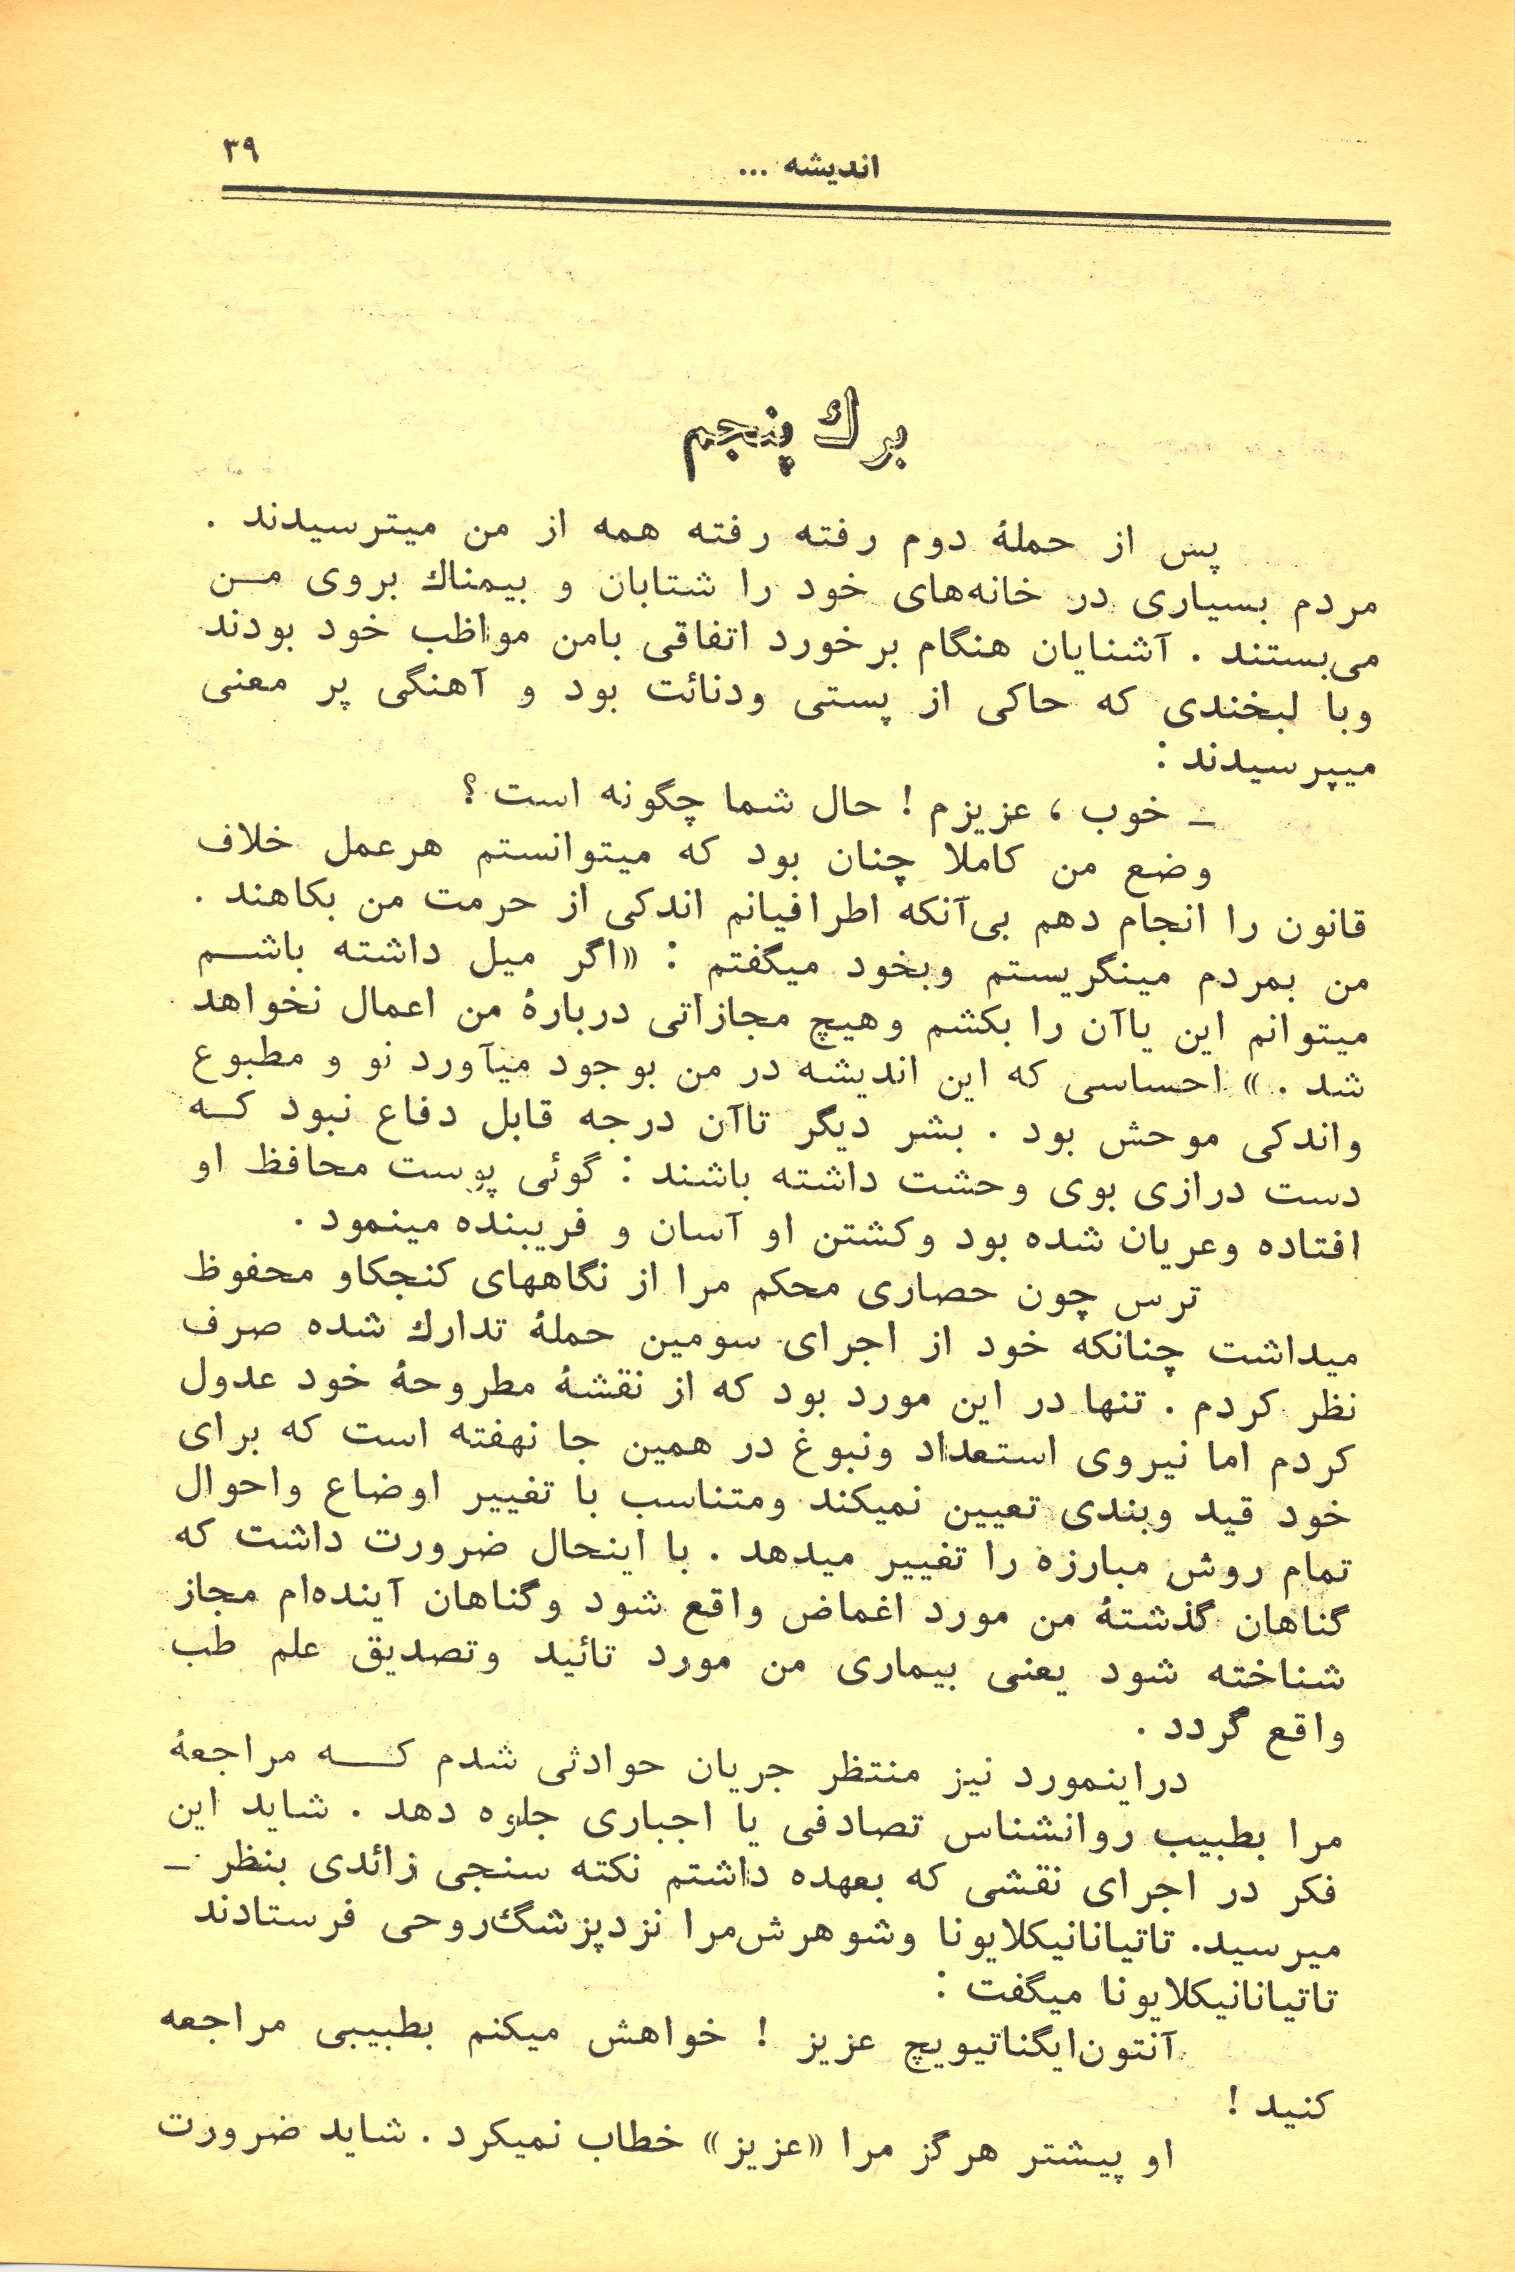 اندیشه ...
۳۹
برك پنجم
پس از حملهٔ دوم رفته رفته همه از من میترسیدند .
مردم بسیاری در خانه‌های خود را شتابان و بیمناك بروی مـن
می‌بستند . آشنایان هنگام برخورد اتفاقی بامن مواظب خود بودند
وبا لبخندی که حاکی از پستی ودنائت بود و آهنگی پر معنی
میپرسیدند :
ـ خوب ، عزیزم ! حال شما چگونه است ؟
وضع من کاملا چنان بود که میتوانستم هرعمل خلاف
قانون را انجام دهم بی‌آنکه اطرافیانم اندکی از حرمت من بکاهند .
من بمردم مینگریستم وبخود میگفتم : «اگر میل داشته باشـم
میتوانم این یاآن را بکشم وهیچ مجازاتی دربارهٔ من اعمال نخواهد
شد . » احساسی که این اندیشه در من بوجود میآورد نو و مطبوع
واندکی موحش بود . بشر دیگر تاآن درجه قابل دفاع نبود کـه
دست درازی بوی وحشت داشته باشند : گوئی پوست محافظ او
افتاده وعریان شده بود وکشتن او آسان و فریبنده مینمود .
ترس چون حصاری محکم مرا از نگاههای کنجکاو محفوظ
میداشت چنانکه خود از اجرای سومین حملهٔ تدارك شده صرف
نظر کردم . تنها در این مورد بود که از نقشهٔ مطروحهٔ خود عدول
کردم اما نیروی استعداد ونبوغ در همین جا نهفته است که برای
خود قید وبندی تعیین نمیکند ومتناسب با تغییر اوضاع واحوال
تمام روش مبارزه را تغییر میدهد . با اینحال ضرورت داشت که
گناهان گذشتهٔ من مورد اغماض واقع شود وگناهان آینده‌ام مجاز
شناخته شود یعنی بیماری من مورد تائید وتصدیق علم طب
واقع گردد .
دراینمورد نیز منتظر جریان حوادثی شدم کـه مراجعهٔ
مرا بطبیب روانشناس تصادفی یا اجباری جلوه دهد . شاید این
فکر در اجرای نقشی که بعهده داشتم نکته سنجی زائدی بنظر ـ
میرسید. تاتیانانیکلایونا وشوهرش‌مرا نزدپزشگ‌روحی فرستادند
تاتیانانیکلایونا میگفت :
آنتون‌ایگناتیویچ عزیز ! خواهش میکنم بطبیبی مراجعه
کنید !
او پیشتر هرگز مرا «عزیز» خطاب نمیکرد . شاید ضرورت